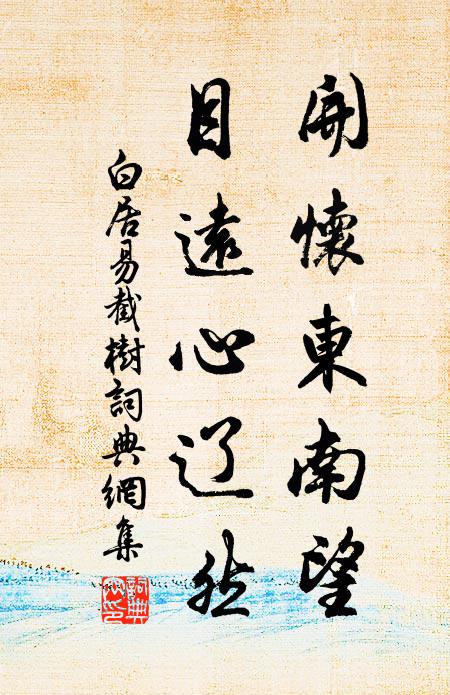 開懷東南望
目遠心辽然
白居易截樹詞典網集